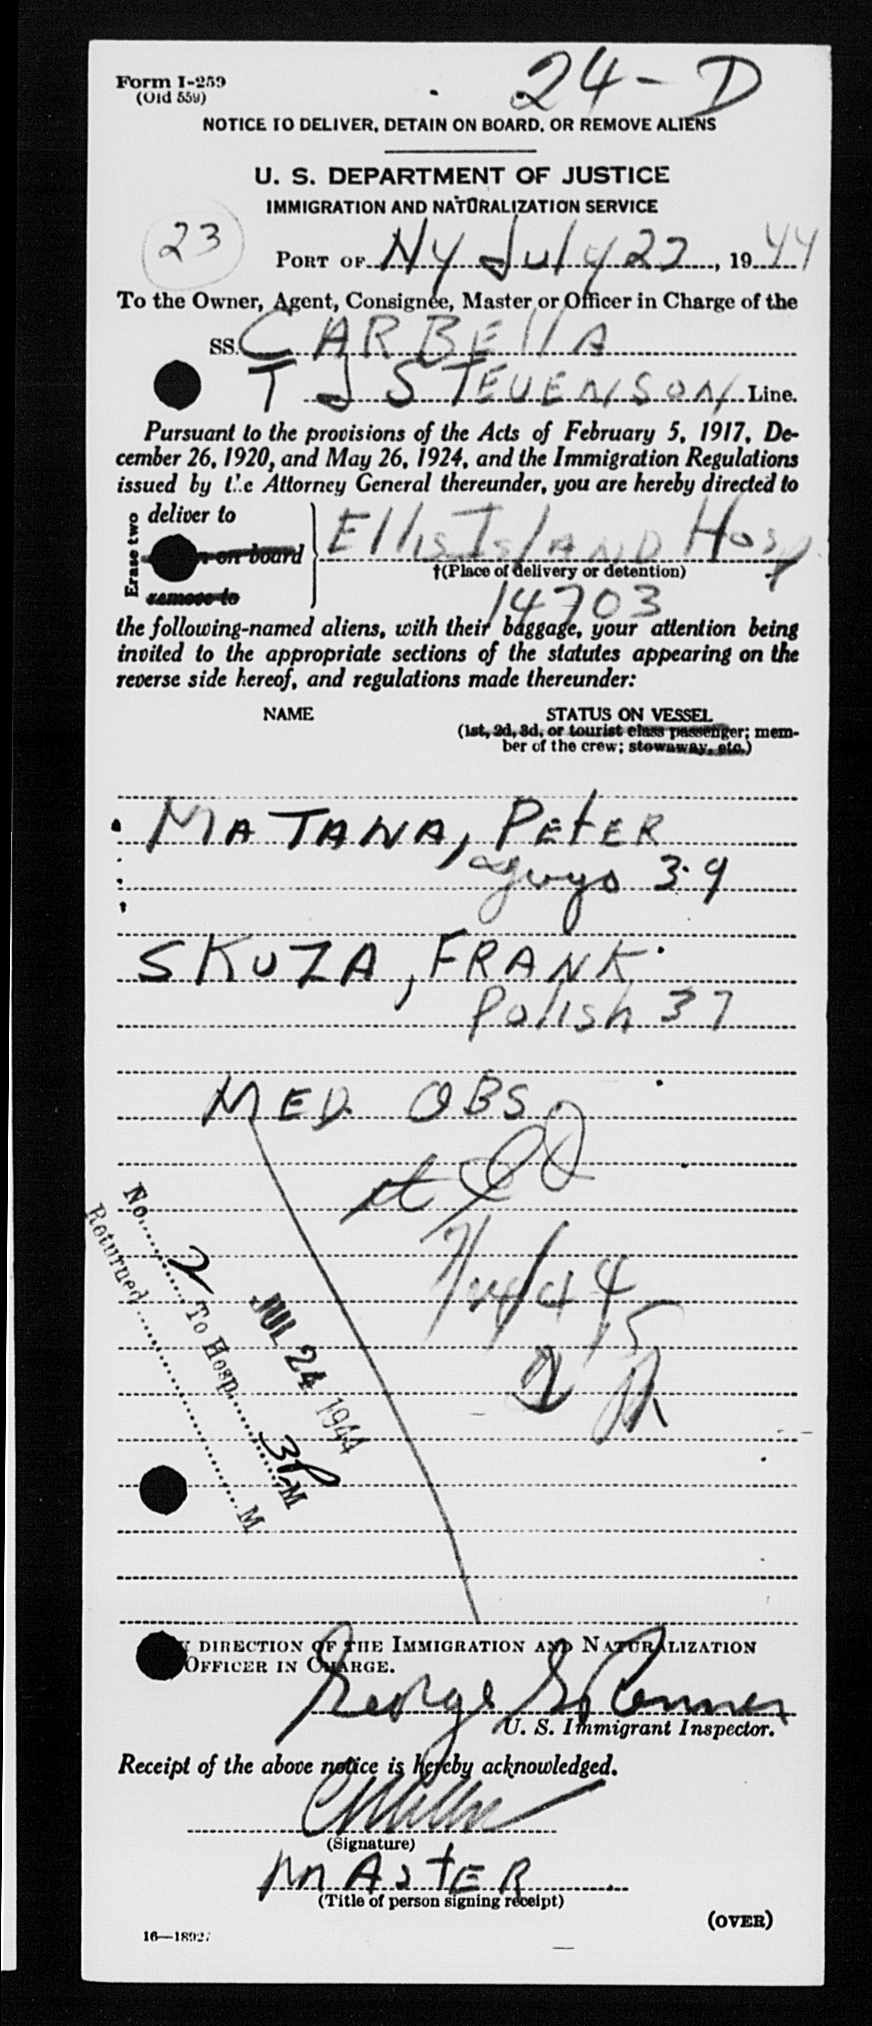 Form I-259
(Old 559)
24-D
NOTICE TO DELIVER, DETAIN ON BOARD, OR REMOVE ALIENS
U. S. DEPARTMENT OF JUSTICE
IMMIGRATION AND NATURALIZATION SERVICE
23
PORT OF NY July 23, 1944
To the Owner, Agent, Consignee, Master or Officer in Charge of the
SS. CARBElla
T J STEVENSON Line.
Pursuant to the provisions of the Acts of February 5, 1917, De-
cember 26, 1920, and May 26, 1924, and the Immigration Regulations
issued by the Attorney General thereunder, you are hereby directed to
Erase two
deliver to
on board
remove to
Ellis Island Hosp
†(Place of delivery or detention)
14703
the following-named aliens, with their baggage, your attention being
invited to the appropriate sections of the statutes appearing on the
reverse side hereof, and regulations made thereunder:
NAME STATUS ON VESSEL
(1st, 2d, 3d, or tourist class passenger; mem-
ber of the crew; stowaway, etc.)
MATANA, PETER
Jugo 39
SKUZA, FRANK
Polish 37
MED. OBS
7/24/44
No. 2 To Hosp. 3P M
Returned M
JUL 24 1944
DIRECTION OF THE IMMIGRATION AND NATURALIZATION
OFFICER IN CHARGE.
George
U. S. Immigrant Inspector.
Receipt of the above notice is hereby acknowledged.
(Signature)
MASTER
(Title of person signing receipt)
(OVER)
16—18927